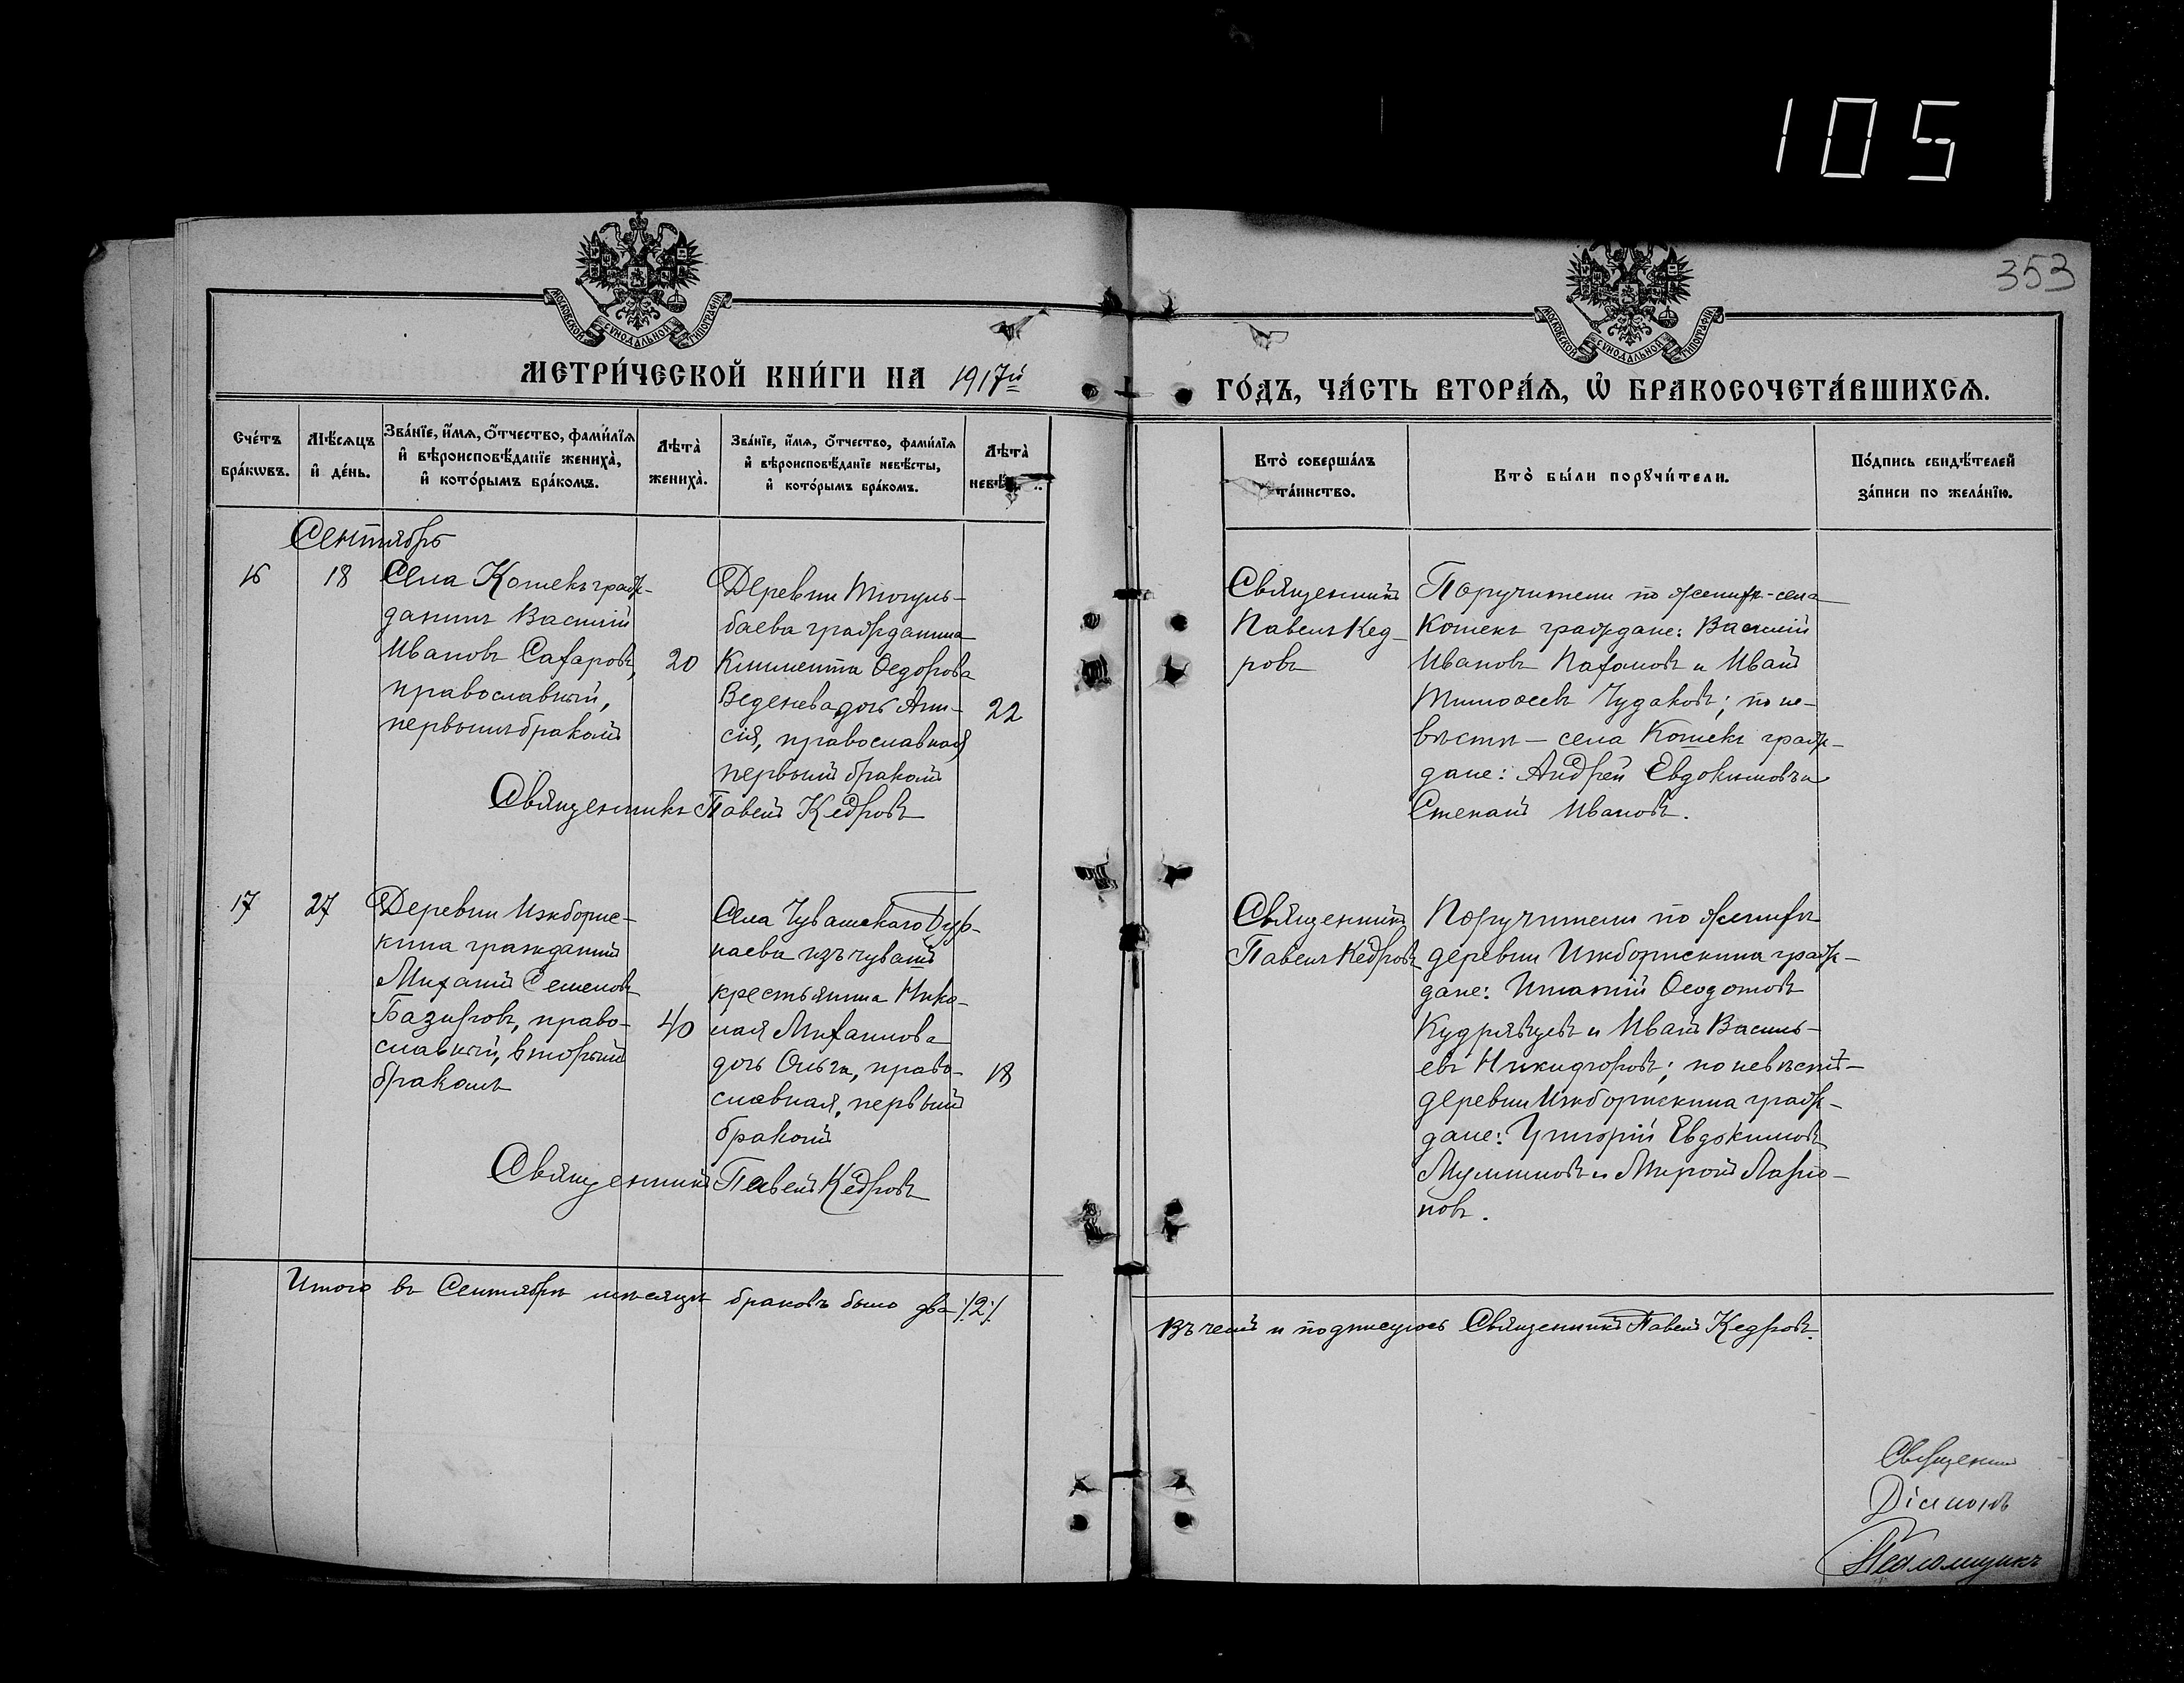 105
353
МОСКОВСКОЙ СѴНОДАЛЬНОЙ ТИПОГРАФІИ
МОСКОВСКОЙ СѴНОДАЛЬНОЙ ТИПОГРАФІИ
МЕТРИ́ЧЕСКОЙ КНИ́ГИ НА 1917й
ГО́ДЪ, ЧА́СТЬ ВТОРА́Ѧ, Ѡ҆ БРАКОСОЧЕТА́ВШИХСѦ.
Сче́тъ
бра́кѡвъ.
Мѣ́сѧцъ
и҆ де́нь.
Зва́нїе, и҆́мѧ, ѻ҆́тчество, фами́лїѧ
и҆ вѣроисповѣ́данїе жениха̀,
и҆ кото́рымъ бра́комъ.
Лѣта̀
жениха̀.
Зва́нїе, и҆́мѧ, ѻ҆́тчество, фами́лїѧ
и҆ вѣроисповѣ́данїе невѣ́сты,
и҆ кото́рымъ бра́комъ.
Лѣта̀
Кто̀ соверша́лъ
та́инство.
Кто̀ бы́ли порꙋчи́тели.
По́дпись свидѣ́телей
за́писи по жела́нїю.
Сентябрь
16
18
Села Кошекъ граж-
данинъ Василій
Ивановъ Сахаровъ,
православный,
первымъ бракомъ
20
Деревни Тюгуль-
баева гражданина
Климента Ѳедорова
Веденева дочь Ани-
сія, православная
первымъ бракомъ
22
Священникъ Павелъ Кедровъ
Священникъ
Павелъ Кед-
ровъ
Поручители по женихѣ - села
Кошекъ граждане: Василій
Ивановъ Пахомовъ и Иванъ
Тимоѳеевъ Чудаковъ; по не-
вѣстѣ — села Кошекъ граж-
дане: Андрей Евдокимовъ и
Степанъ Ивановъ.
17
27
Деревни Ижборис-
кина гражданинъ
Михаилъ Семеновъ
Базыровъ, право-
славный, вторымъ
бракомъ
40
Села Чувашскаго
наева изъ чувашъ
крестьянина Нико-
лая Михаилова
дочь Ольга, право-
славная, первымъ
бракомъ
18
Священникъ Павелъ Кедровъ
Священникъ
Павелъ Кедровъ
Поручители по женихѣ
деревни Ижборискина граж-
дане: Игнатій Ѳеодотовъ
Кудрявцевъ и Иванъ Василь-
евъ Никифоровъ; по невѣстѣ —
деревни Ижборискина граж-
дане: Григорій Евдокимовъ
и Миронъ Ларіо-
новъ.
Итого въ Сентябрѣ мѣсяцѣ браковъ было два /2/
Въ чемъ и подписуюсь Священникъ Павелъ Кедровъ.
Священник
Діаконъ
Псаломщикъ